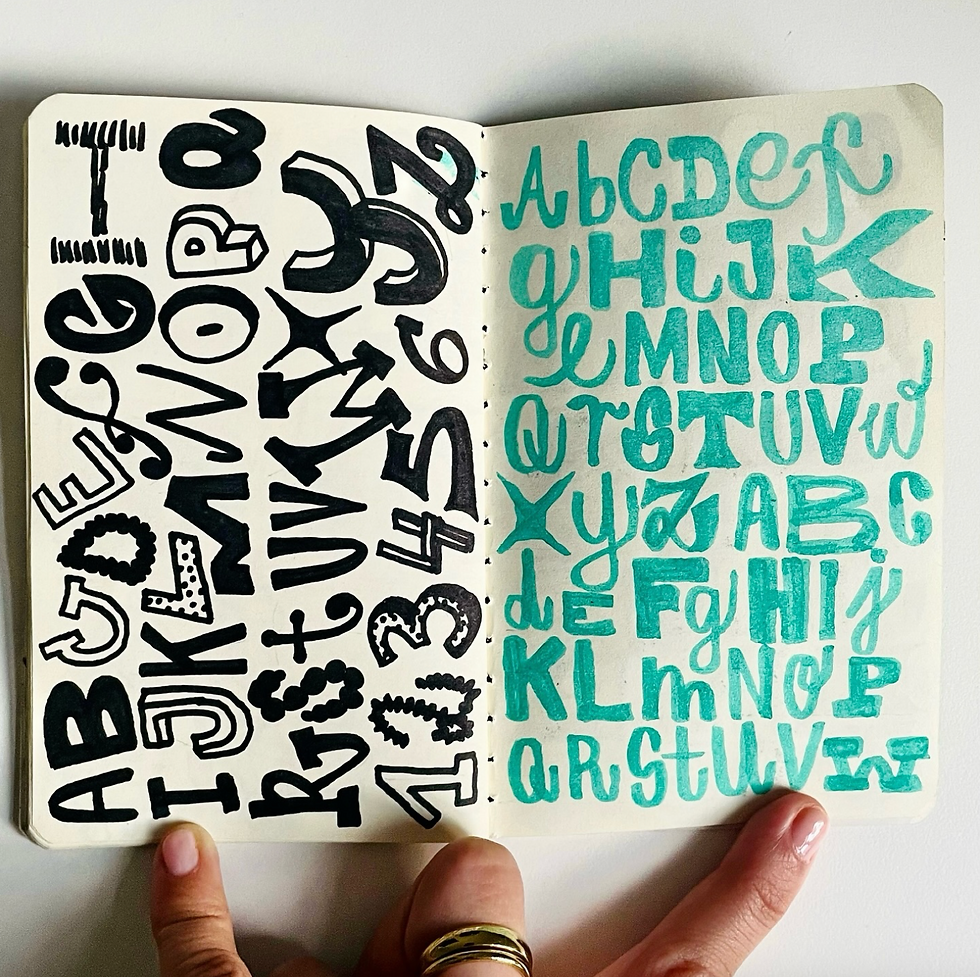 ABCDEFGH
IJKLMNOPQ
RStUVWXYZ
123456
AbCDef
gHiJK
lMNOP
QrSTUVw
XyZABC
dEFgHIj
KLmNOP
QRStUVW